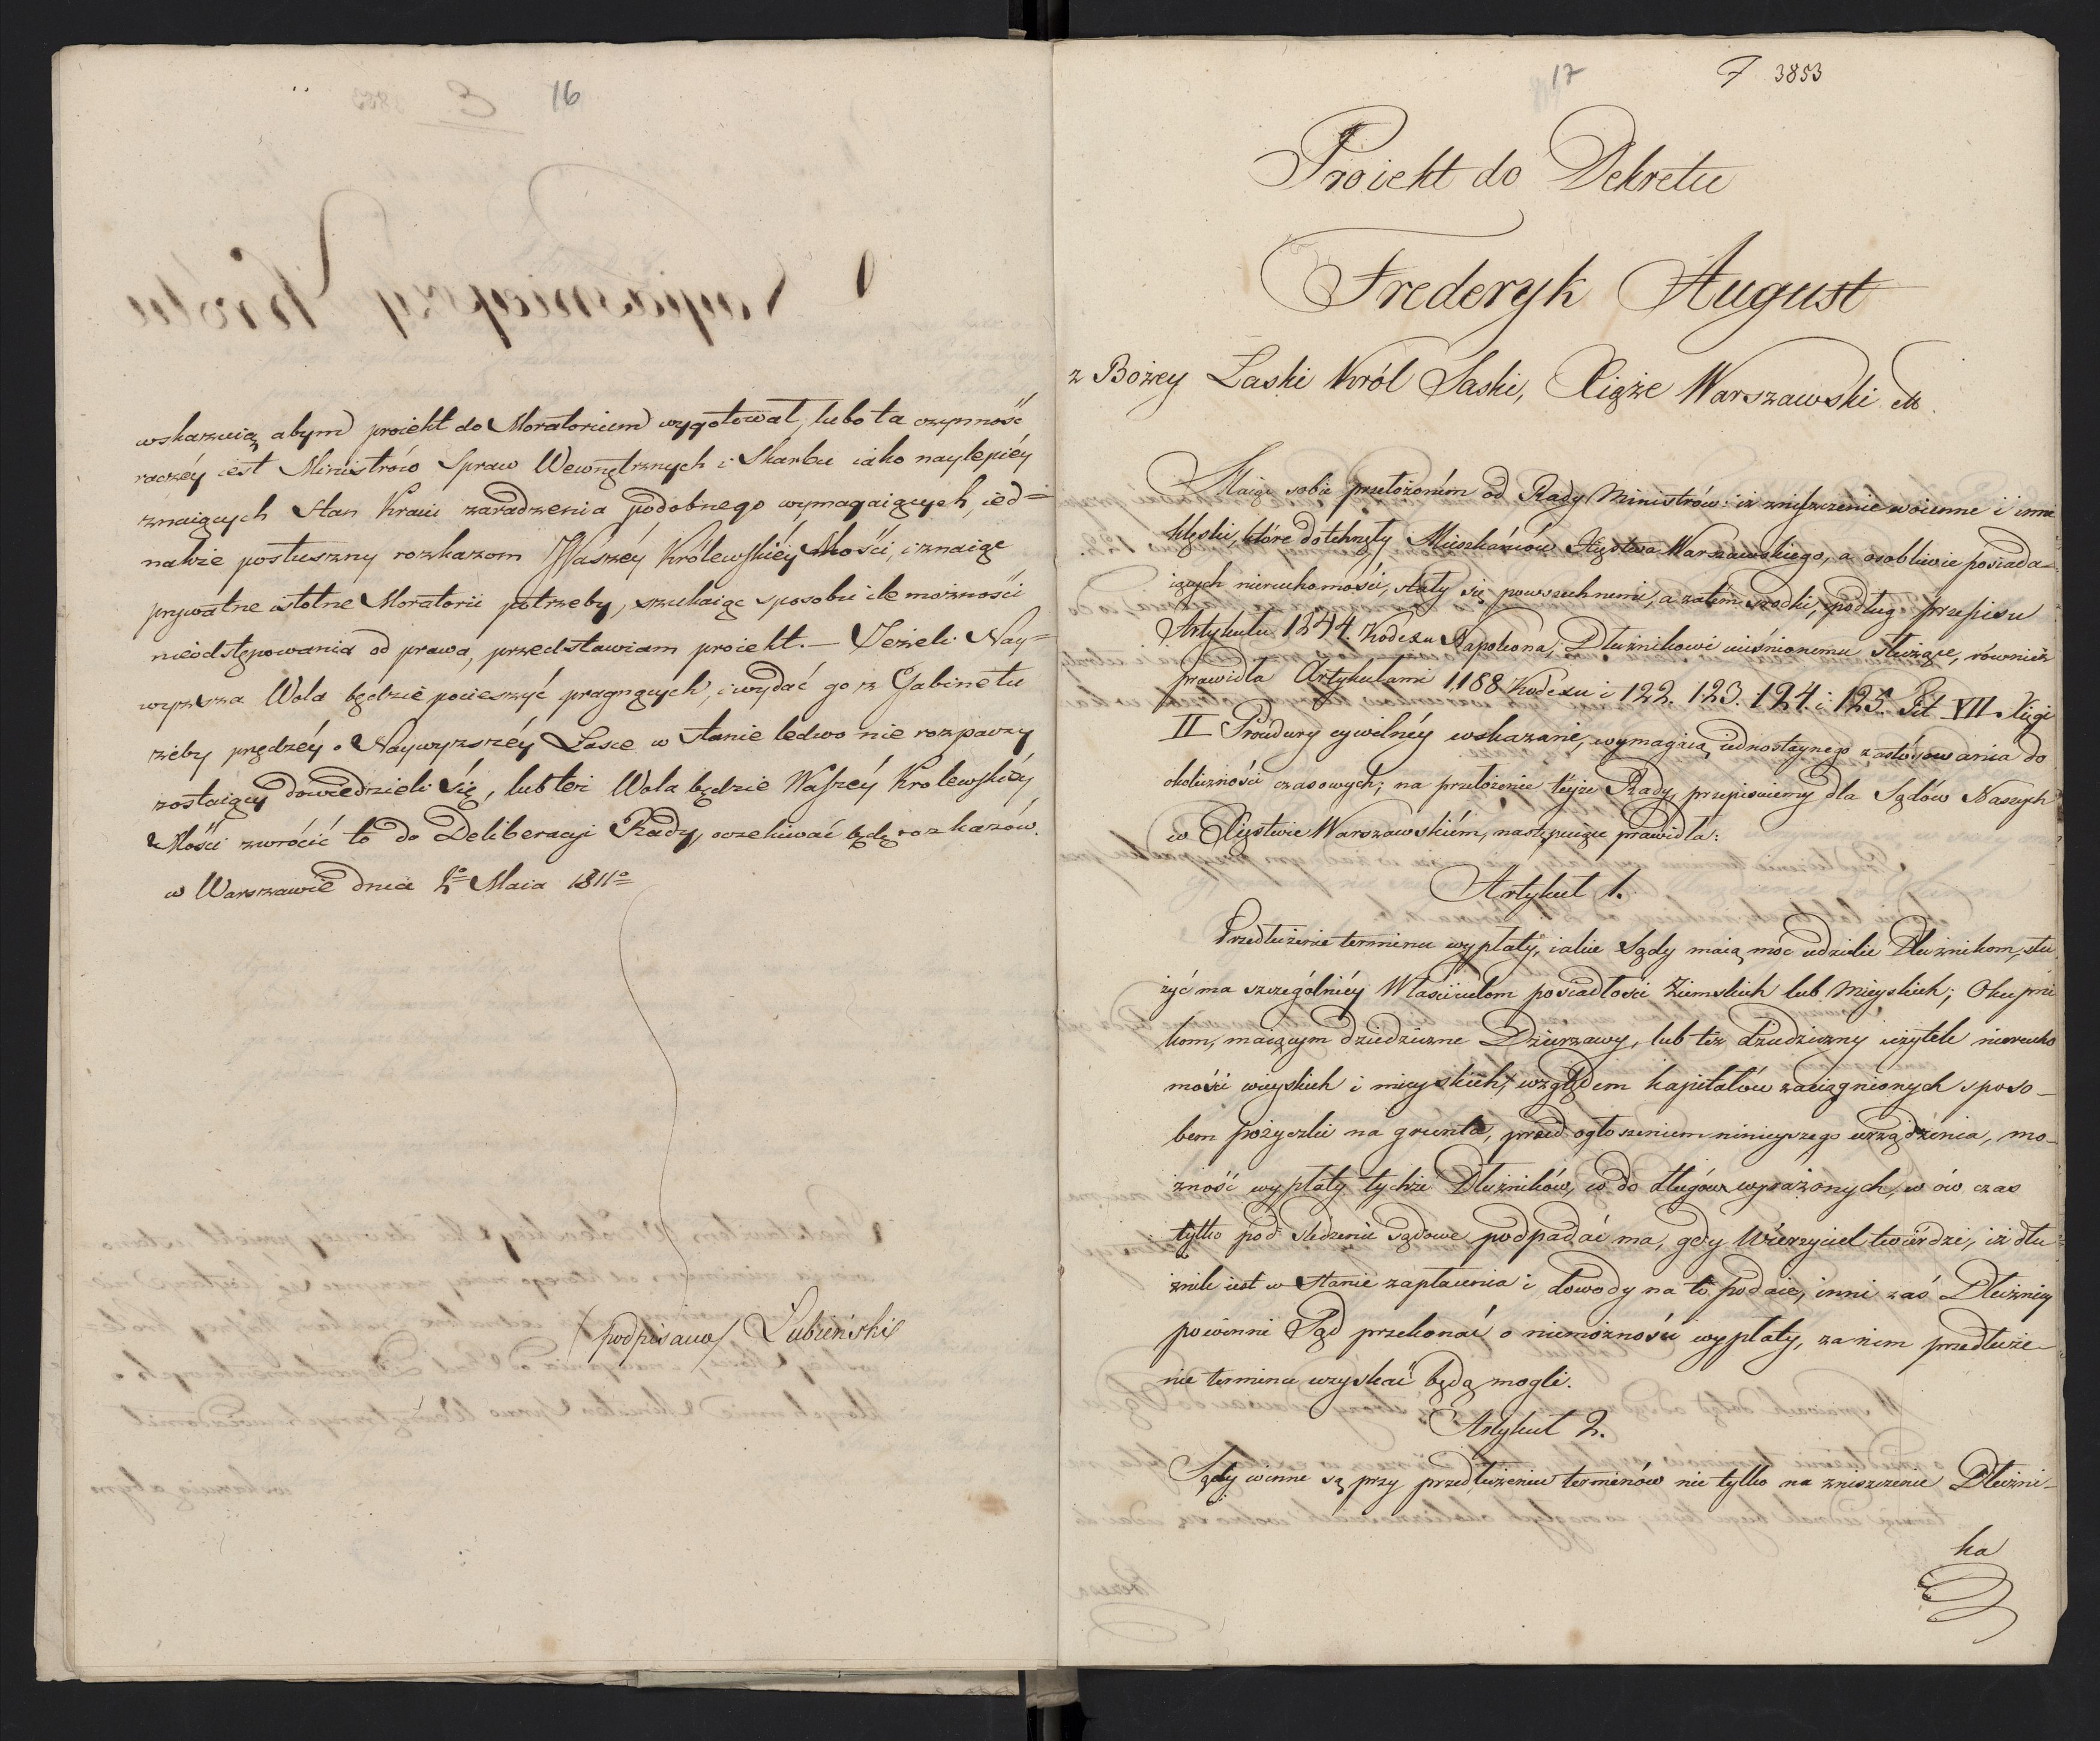 16
wskazuią abym proiekt do Moratorium wygotował, lubo ta czynność
raczéy iest Ministrów Spraw Wewnętrznych i Skarbu iako naylepiéy
znaiących Stan Kraiu zaradzenia podobnego wymagaiących, ied=
nakże posłuszny rozkazom Waszéy Królewskiéy Mości, i znaiąc
prywatne istotne Moratorii potrzeby, szukaiąc sposobu ile możności
nieodstępowania od prawa, przedstawiam proiekt. — Jeżeli Nay=
wyższa Wola będzie pocieszyć pragnących, i wydać go z Gabinetu
żeby prędzéy o Naywyższéy Łasce w stanie ledwo nie rozpaczy
zostaiący dowiedzieli się, lub też Wola będzie Waszéy Krolewskiéy
Mości zwrócić to do Deliberacyi Rady, oczekiwać będę rozkazów.
w Warszawie dnia 2º Maia 1811º
/podpisano/ Łubieński
17
7 3853
Proiekt do Dekretu
Frederyk August
z Bożey Łaski Król Saski, Xiąże Warszawski etc.
Maiąc sobie przełożonem od Rady Ministrów: iż zniszczenie woienne i inne
klęski, które dotchnęły Mieszkańców Xięstwa Warszawskiego, a osobliwie posiada-
iących nieruchomości, stały się powszechnemi, a zatem srodki, podług przepisu
Artykułu 1244. Kodexu Napoleona, Dłużnikowi uciśnionemu służące, również
prawidła Artykułami 1188 Kodexu i 122. 123. 124. i 125. Tit VII. Xięgi
II Procedury cywilnéy wskazane, wymagaią iednostaynego zastósowania do
okoliczności czasowych; na przełożenie téyże Rady, przepisuiemy dla Sądów Naszych
w Xięstwie Warszawskiém, następuiące prawidła:
Artykuł 1.
Przedłużenie terminu wypłaty, iakie Sądy maią móc udzielić Dłużnikom, słu
żyć ma szczególniéy Właścicielom posiadłości Ziemskich lub Mieyskich; Okupni
kom, maiącym dziedziczne Dzierżawy, lub też dziedziczny użytek nierucho
mości wieyskich i mieyskich, względem kapitałów zaciągnionych sposo-
bem pożyczki na grunta, przed ogłoszeniem ninieyszego urządzenia, mo-
żność wypłaty tychże Dłużników, co do długów wyrażonych, w ów czas
tylko pod śledzenie sądowe podpadać ma, gdy Wierzyciel twierdzi, iż dłu
żnik iest w stanie zapłacenia i dowody na to podaie, inni zaś Dłużnicy
powinni Sąd przekonać o niemożności wypłaty, zanim przedłuże-
nie terminu uzyskać będą mogli.
Artykuł 2.
Sądy winne są przy przedłużeniu terminów nie tylko na zniszczenie Dłużni-
ka